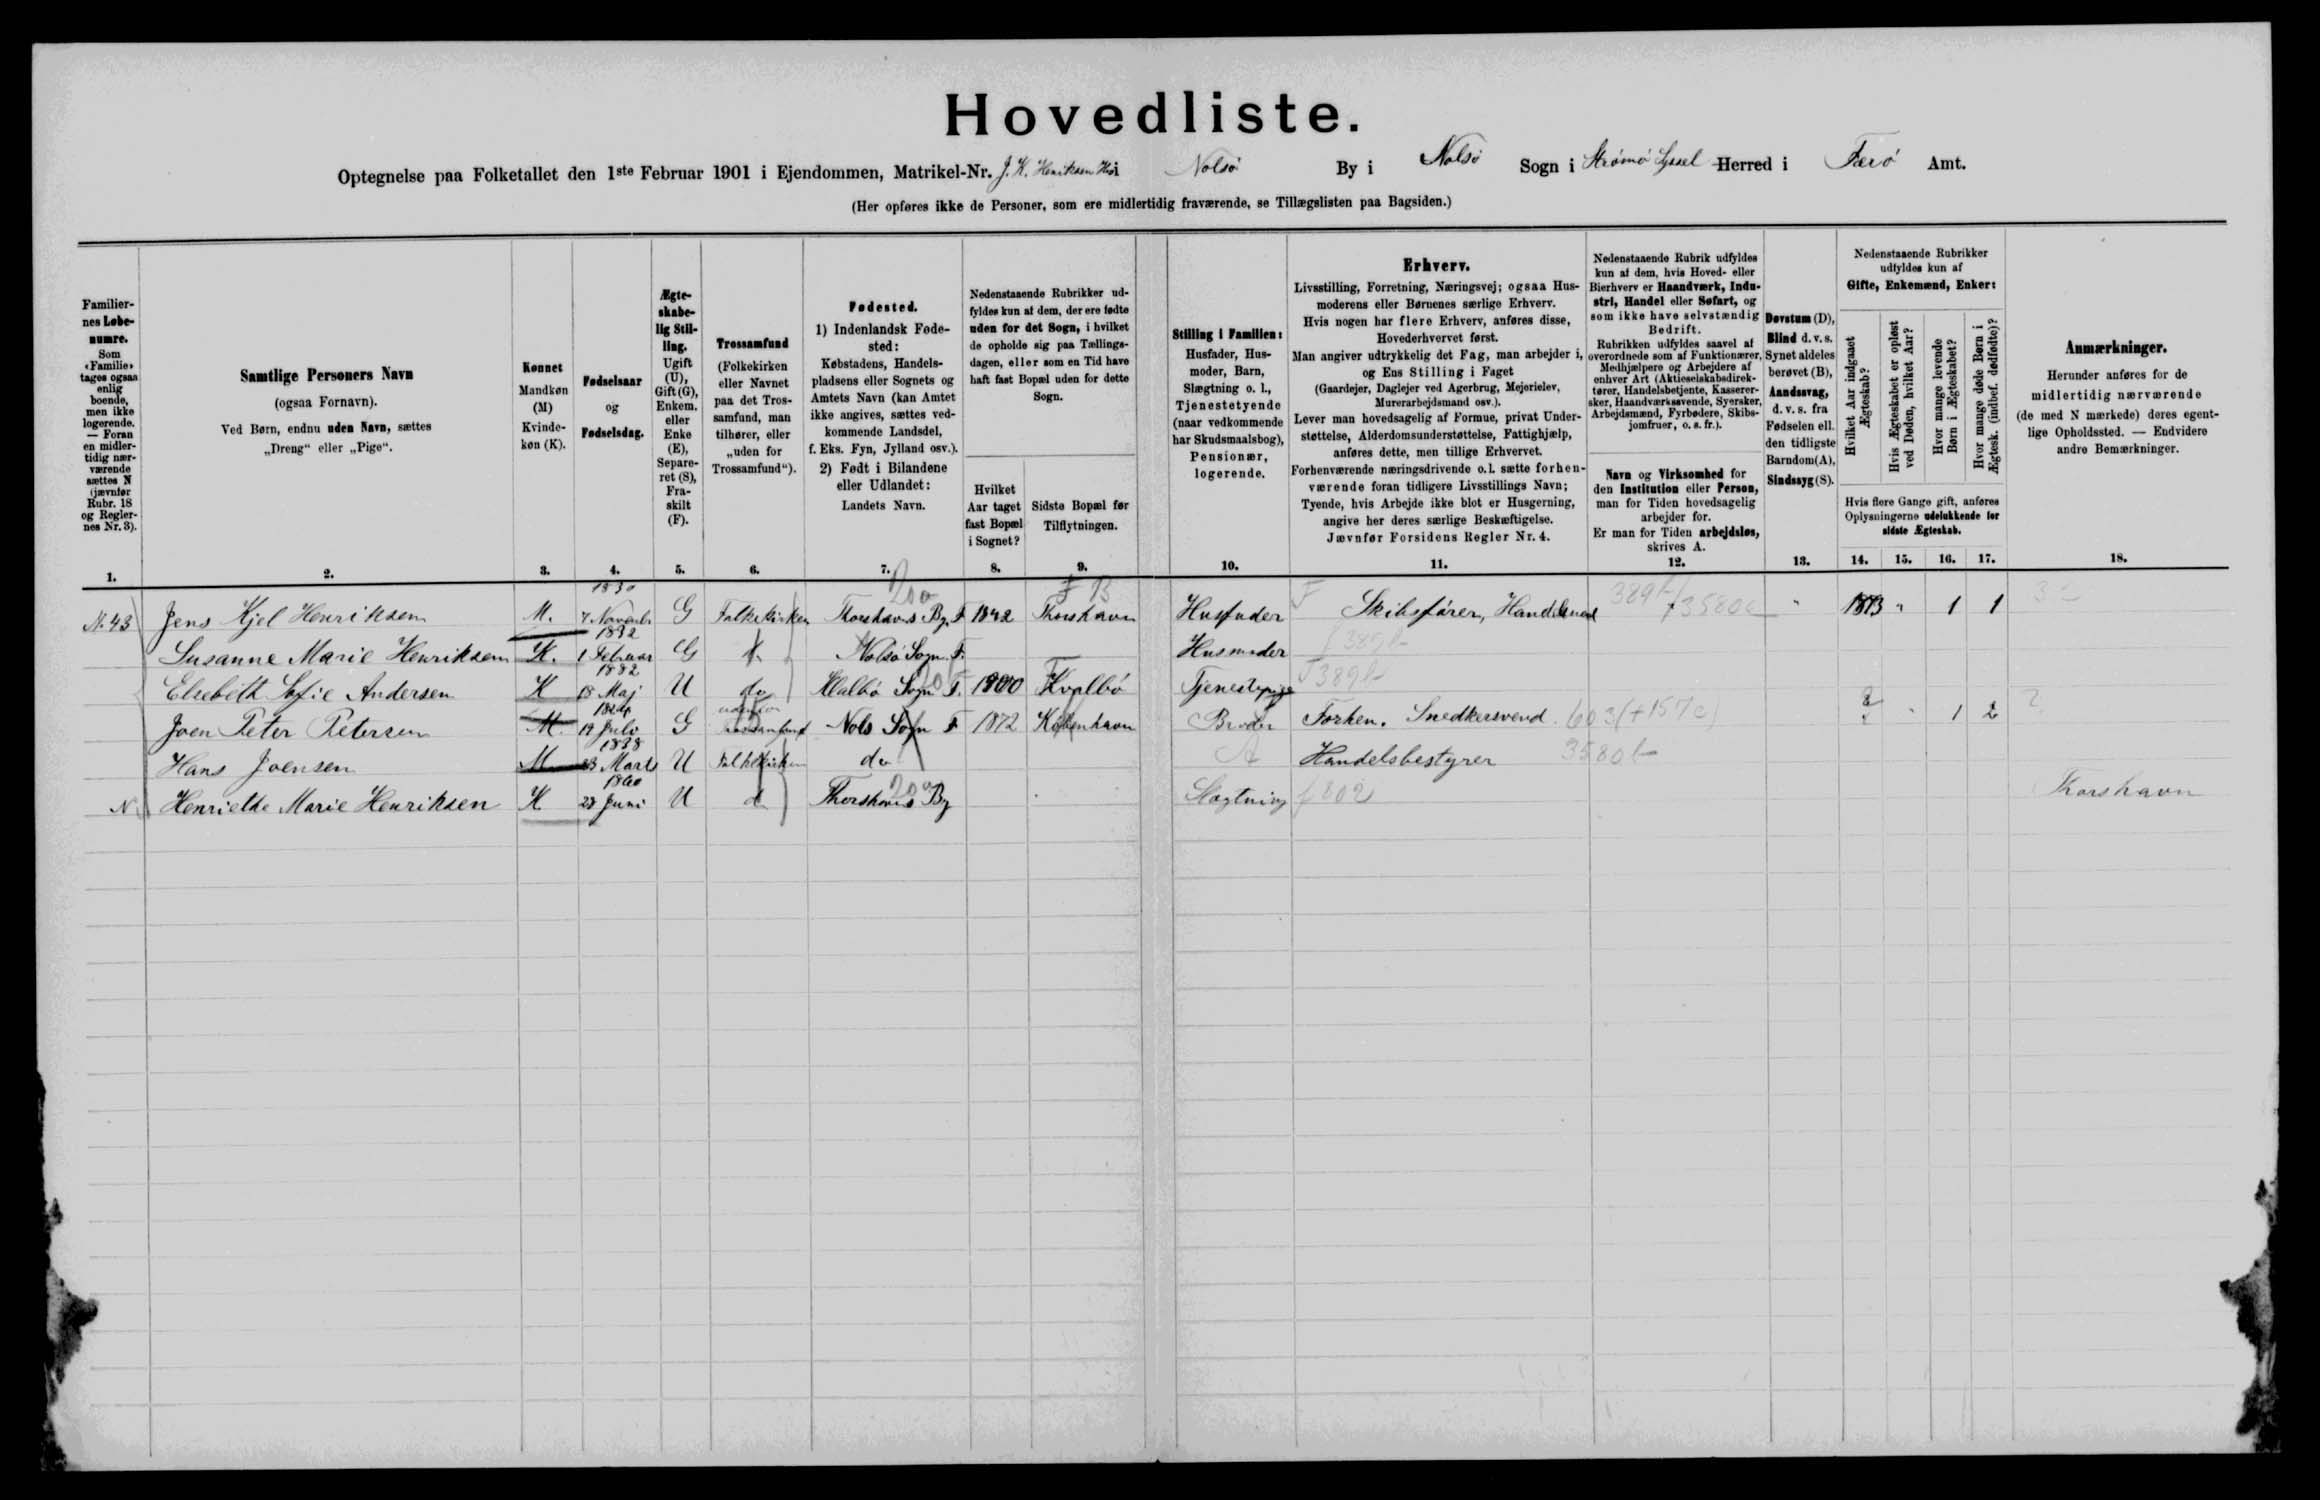 Hovedliste.
Optegnelse paa Folketallet den 1ste Februar 1901 i Ejendommen, Matrikel-Nr. J. K. Henriksen Hus i Nolsö By i Nolsö Sogn i Strömö Syssel Herred i Færö Amt.
(Her opføres ikke de Personer, som ere midlertidig fraværende, se Tillægslisten paa Bagsiden.)
Familiernes Løbenumre. Som «Familie» tages ogsaa enlig boende, men ikke logerende. — Foran en midlertidig nærværende sættes N (jævnfør Rubr. 18 og Reglernes Nr. 3).
Samtlige Personers Navn (ogsaa Fornavn). Ved Børn, endnu uden Navn, sættes „Dreng“ eller „Pige“.
Kønnet Mandkøn (M) Kvindekøn (K).
Fødselsaar og Fødselsdag.
Ægteskabelig Stilling. Ugift (U), Gift (G), Enkem. eller Enke (E), Separeret (S), Fraskilt (F).
Trossamfund (Folkekirken eller Navnet paa det Trossamfund, man tilhører, eller „uden for Trossamfund“).
Fødested. 1) Indenlandsk Fødested: Købstadens, Handelspladsens eller Sognets og Amtets Navn (kan Amtet ikke angives, sættes vedkommende Landsdel, f. Eks. Fyn, Jylland osv.). 2) Født i Bilandene eller Udlandet: Landets Navn.
Nedenstaaende Rubrikker udfyldes kun af dem, der ere fødte uden for det Sogn, i hvilket de opholde sig paa Tællingsdagen, eller som en Tid have haft fast Bopæl uden for dette Sogn.
Hvilket Aar taget fast Bopæl i Sognet?
Sidste Bopæl før Tilflytningen.
Stilling i Familien: Husfader, Husmoder, Barn, Slægtning o. l., Tjenestetyende (naar vedkommende har Skudsmaalsbog), Pensionær, logerende.
Erhverv.
Livsstilling, Forretning, Næringsvej; ogsaa Husmoderens eller Børnenes særlige Erhverv.
Hvis nogen har flere Erhverv, anføres disse, Hovederhvervet først.
Man angiver udtrykkelig det Fag, man arbejder i, og Ens Stilling i Faget
(Gaardejer, Daglejer ved Agerbrug, Mejerielev, Murerarbejdsmand osv.).
Lever man hovedsagelig af Formue, privat Understøttelse, Alderdomsunderstøttelse, Fattighjælp, anføres dette, men tillige Erhvervet.
Forhenværende næringsdrivende o. l. sætte forhenværende foran tidligere Livsstillings Navn;
Tyende, hvis Arbejde ikke blot er Husgerning, angive her deres særlige Beskæftigelse.
Jævnfør Forsidens Regler Nr. 4.
Nedenstaaende Rubrik udfyldes kun af dem, hvis Hoved- eller Bierhverv er Haandværk, Industri, Handel eller Søfart, og som ikke have selvstændig Bedrift.
Rubrikken udfyldes saavel af overordnede som af Funktionærer, Medhjælpere og Arbejdere af enhver Art (Aktieselskabsdirektører, Handelsbetjente, Kasserersker, Haandværkssvende, Syersker, Arbejdsmænd, Fyrbødere, Skibsjomfruer, o. s. fr.).
Navn og Virksomhed for den Institution eller Person, man for Tiden hovedsagelig arbejder for.
Er man for Tiden arbejdsløs, skrives A.
Døvstum (D), Blind d. v. s. Synet aldeles berøvet (B), Aandssvag, d. v. s. fra Fødselen ell. den tidligste Barndom (A), Sindssyg (S).
Nedenstaaende Rubrikker udfyldes kun af Gifte, Enkemænd, Enker:
Hvilket Aar indgaaet Ægteskab?
Hvis Ægteskabet er opløst ved Døden, hvilket Aar?
Hvor mange levende Børn i Ægteskabet?
Hvor mange døde Børn i Ægtesk. (indbef. dødfødte)?
Hvis flere Gange gift, anføres Oplysningerne udelukkende for sidste Ægteskab.
Anmærkninger.
Herunder anføres for de midlertidig nærværende (de med N mærkede) deres egentlige Opholdssted. — Endvidere andre Bemærkninger.
1. 2. 3. 4. 5. 6. 7. 8. 9. 10. 11. 12. 13. 14. 15. 16. 17. 18.
No 43 Jens Kjel Henriksen M. 1830 7 Novembr G Folkekirken Thorshavns By. F 1842 Thorshavn Husfader Skibsfører, Handelsmand 1873 " 1 1
Susanne Marie Henriksen K. 1832 1 Februar G Nolsö Sogn F. Husmoder 389b
Elsebeth Sofie Andersen K 1882 18 Maj U do Kvalbö Sogn F. 1900 Kvalbö Tjenestepige 389b
Joen Peter Petersen M. 19 Juli G udenfor Trossamfund Nols Sogn F 1872 Köbenhavn Broder Forhen. Snedkersvend 603 (+157c) ? " 1 2 ?
Hans Joensen M 1838 23 Marts U Folkekirken do A Handelsbestyrer 3580b
N. Henriette Marie Henriksen K 1860 28 Juni U d Thorshavns By Slægtning f802 Thorshavn